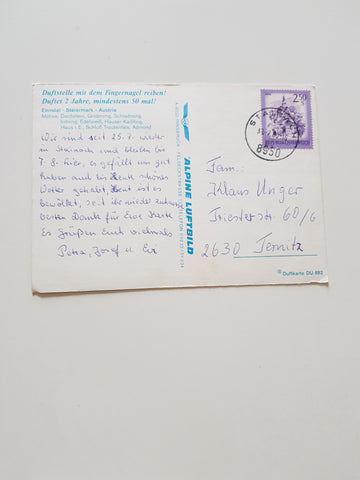 Duftstelle mit dem Fingernagel reiben!
Duftet 2 Jahre, mindestens 50 mal!
Ennstal - Steiermark - Austria
Motive: Dachstein, Gröbming, Schladming,
Irdning, Edelweiß, Hauser Kaibling,
Haus i. E., Schloß Trautenfels, Admont
Wir sind seit 25.7. wieder
in Stainach und bleiben bis
7.8. hier, es gefällt uns gut
haben auch bis heute schönes
Wetter gehabt, heut ist es
bewölkt, seit ihr wieder
besten Dank für Eure Karte
Es grüßen Euch vielmals
Petra, Josef u. Evi
ALPINE LUFTBILD
2.50
REPUBLIK ÖSTERREICH
8950
Fam.
Klaus Unger
Triesterstr. 60/6
2630 Ternitz
Duftkarte DU 882